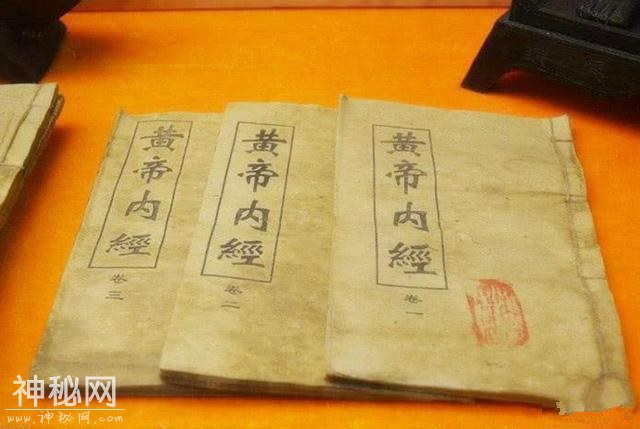 黃帝內經
卷三
黃帝內經
卷二
黃帝內經
卷一
神秘网
www.神秘网.com